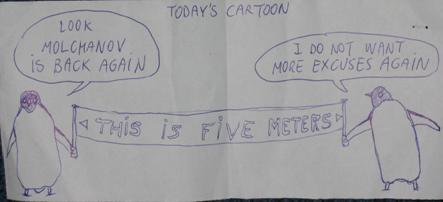 TODAY'S CARTOON
LOOK
MOLCHANOV
iS BACK AGAIN
I DO NOT WANT
MORE EXCUSES AGAIN
THIS iS FiVE METERS